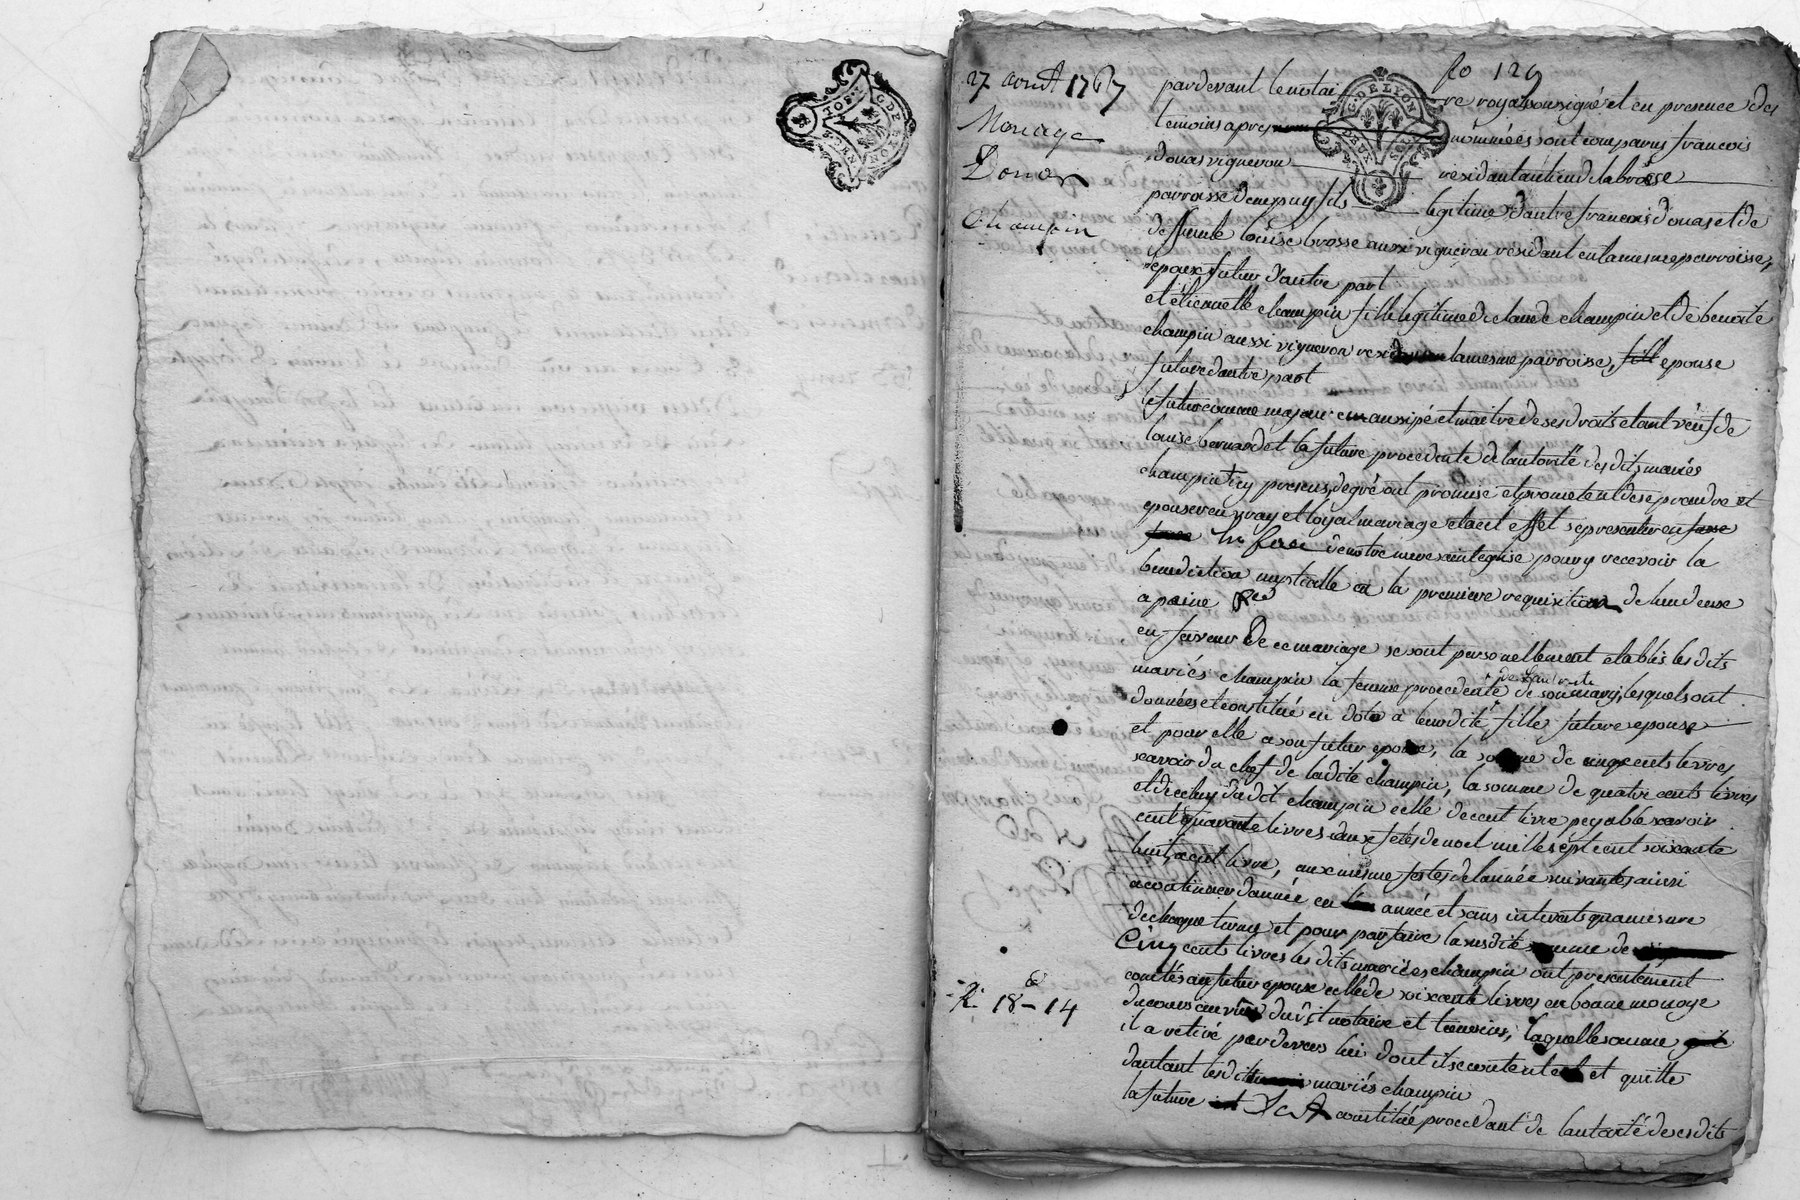 fo 129
27 avril 1767
Mariage
Doüas
Champin
pardevant le notaire royal soussigné et en presence des
temoins apres nommées sont comparus francois
doüas vigneron residant au lieu de la brosse
parroisse de merpuy fils legitime d'autre francois doüas et de
deffunte loüise brosse aussi vigneron residant en la mesme parroisse,
epoux futur d'autre part
et étiennette champin fille legitime de claude champin et de benoite
champin aussi vigneron residant en la mesme parroise, fill epouse
future d'autre part
le futur comme majeur emansipé et maitre de ses droits etant veuf de
louise bernard et la future procedente de l'autorité des dits mariés
champin icy presens, de gré ont promise et prometent de se prendre et
epouser en vray et loyal mariage et a cet effet se presenter en fasse
en face de notre mere sainte eglise pour y recevoir la
benediction nuptialle a la premiere requisition de lun deux
a peine &ca
en faveur De ce mariage se sont personellement etablis les dits
mariés champin la femme procedente de l'autorité de son mary, lesquels ont
données et constitué en dote a leur dite fille future epouse
et pour elle a son futur epoux, la somme de cinq cents livres
scavoir du chef de la dite champin, la somme de quatre cents livres
et de celuy dudit champin celle de cent livre payable scavoir
cent quarante livres aux fetes de noel mille sept cent soixante
huit, cent livre, aux mesme festes de lannée suivante, ainsi
a continuer d'année en année et sans interests qu'a mesure
de chaque terme et pour parfaire la susdite somme de
Cinq cents livres les dits mariés champin ont presentement
comtés au futur epoux celle de soixante livres en bonne monoye
du cours au vü du dit notaire et temoins, laquelle somme
il a retiré par devers lui dont il se contente et quitte
d'autant les dits mariés champin
R. 18 - 14
la future s'est constitué procedant de lautorité de ses dits